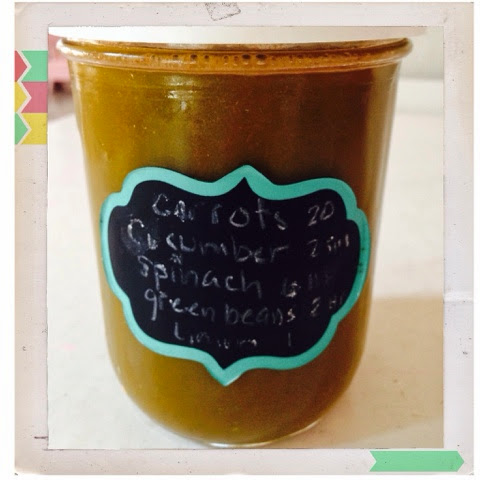 Carrots 20
Cucumber 2
Spinach
green beans 2
1